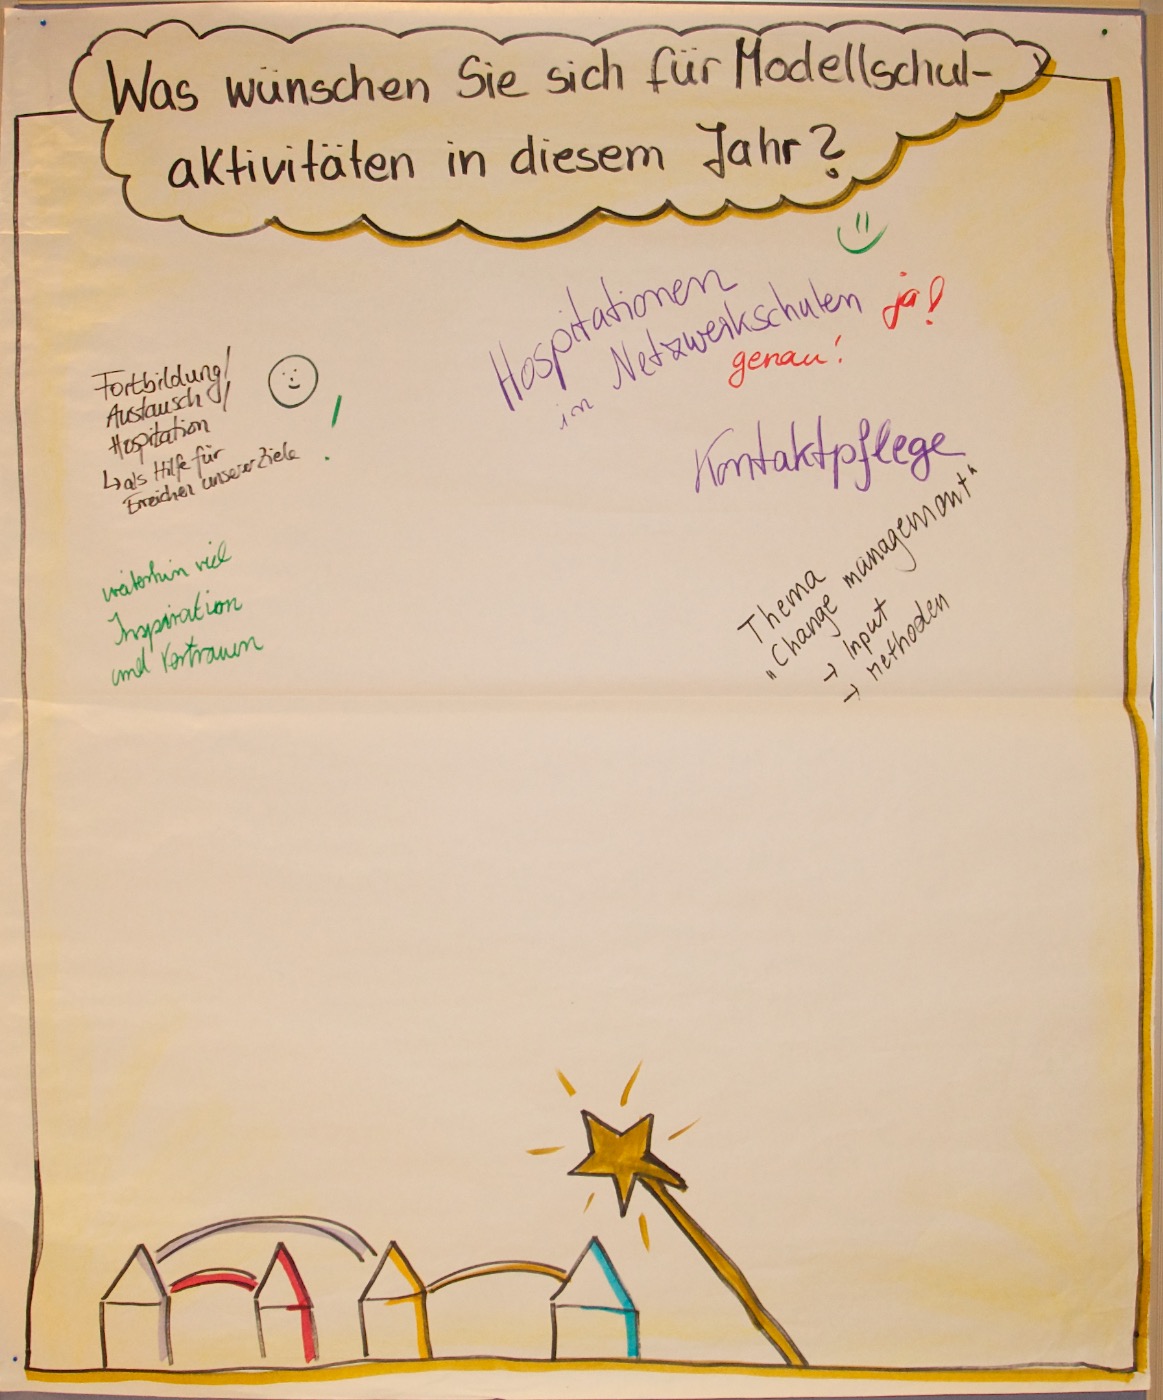 Was wünschen Sie sich für Modellschul-
aktivitäten in diesem Jahr?
Hospitationen
in Netzwerkschulen ja!
genau!
Kontaktpflege
Fortbildung/
Austausch/
Hospitation
↳ als Hilfe für
Erreichen unserer Ziele
!
weiterhin viel
Inspiration
und Vertrauen
Thema
„Change management“
→ Input
→ Methoden